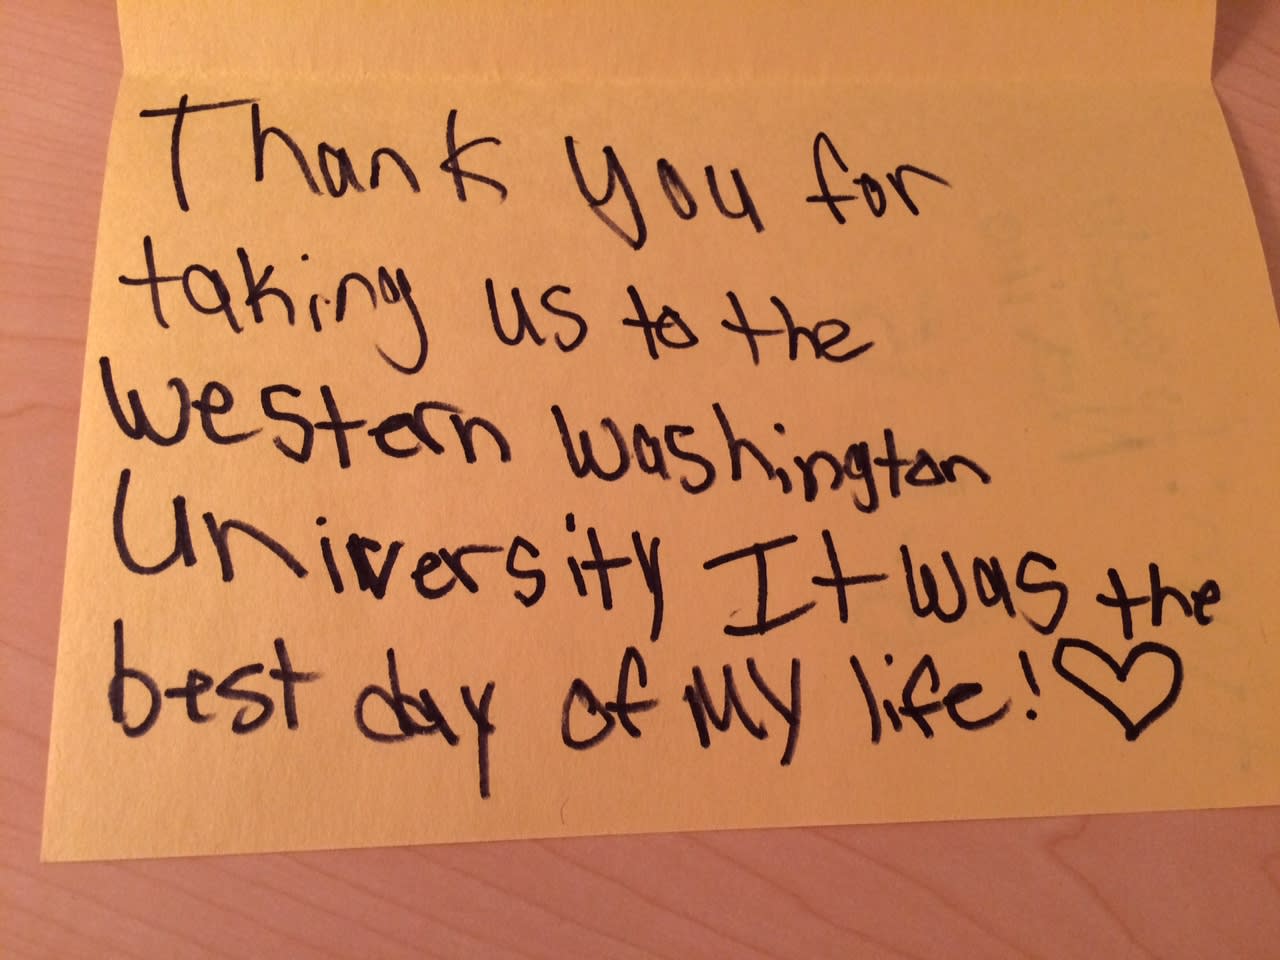 Thank you for
taking us to the
Western Washington
University It was the
best day of My life! ♡